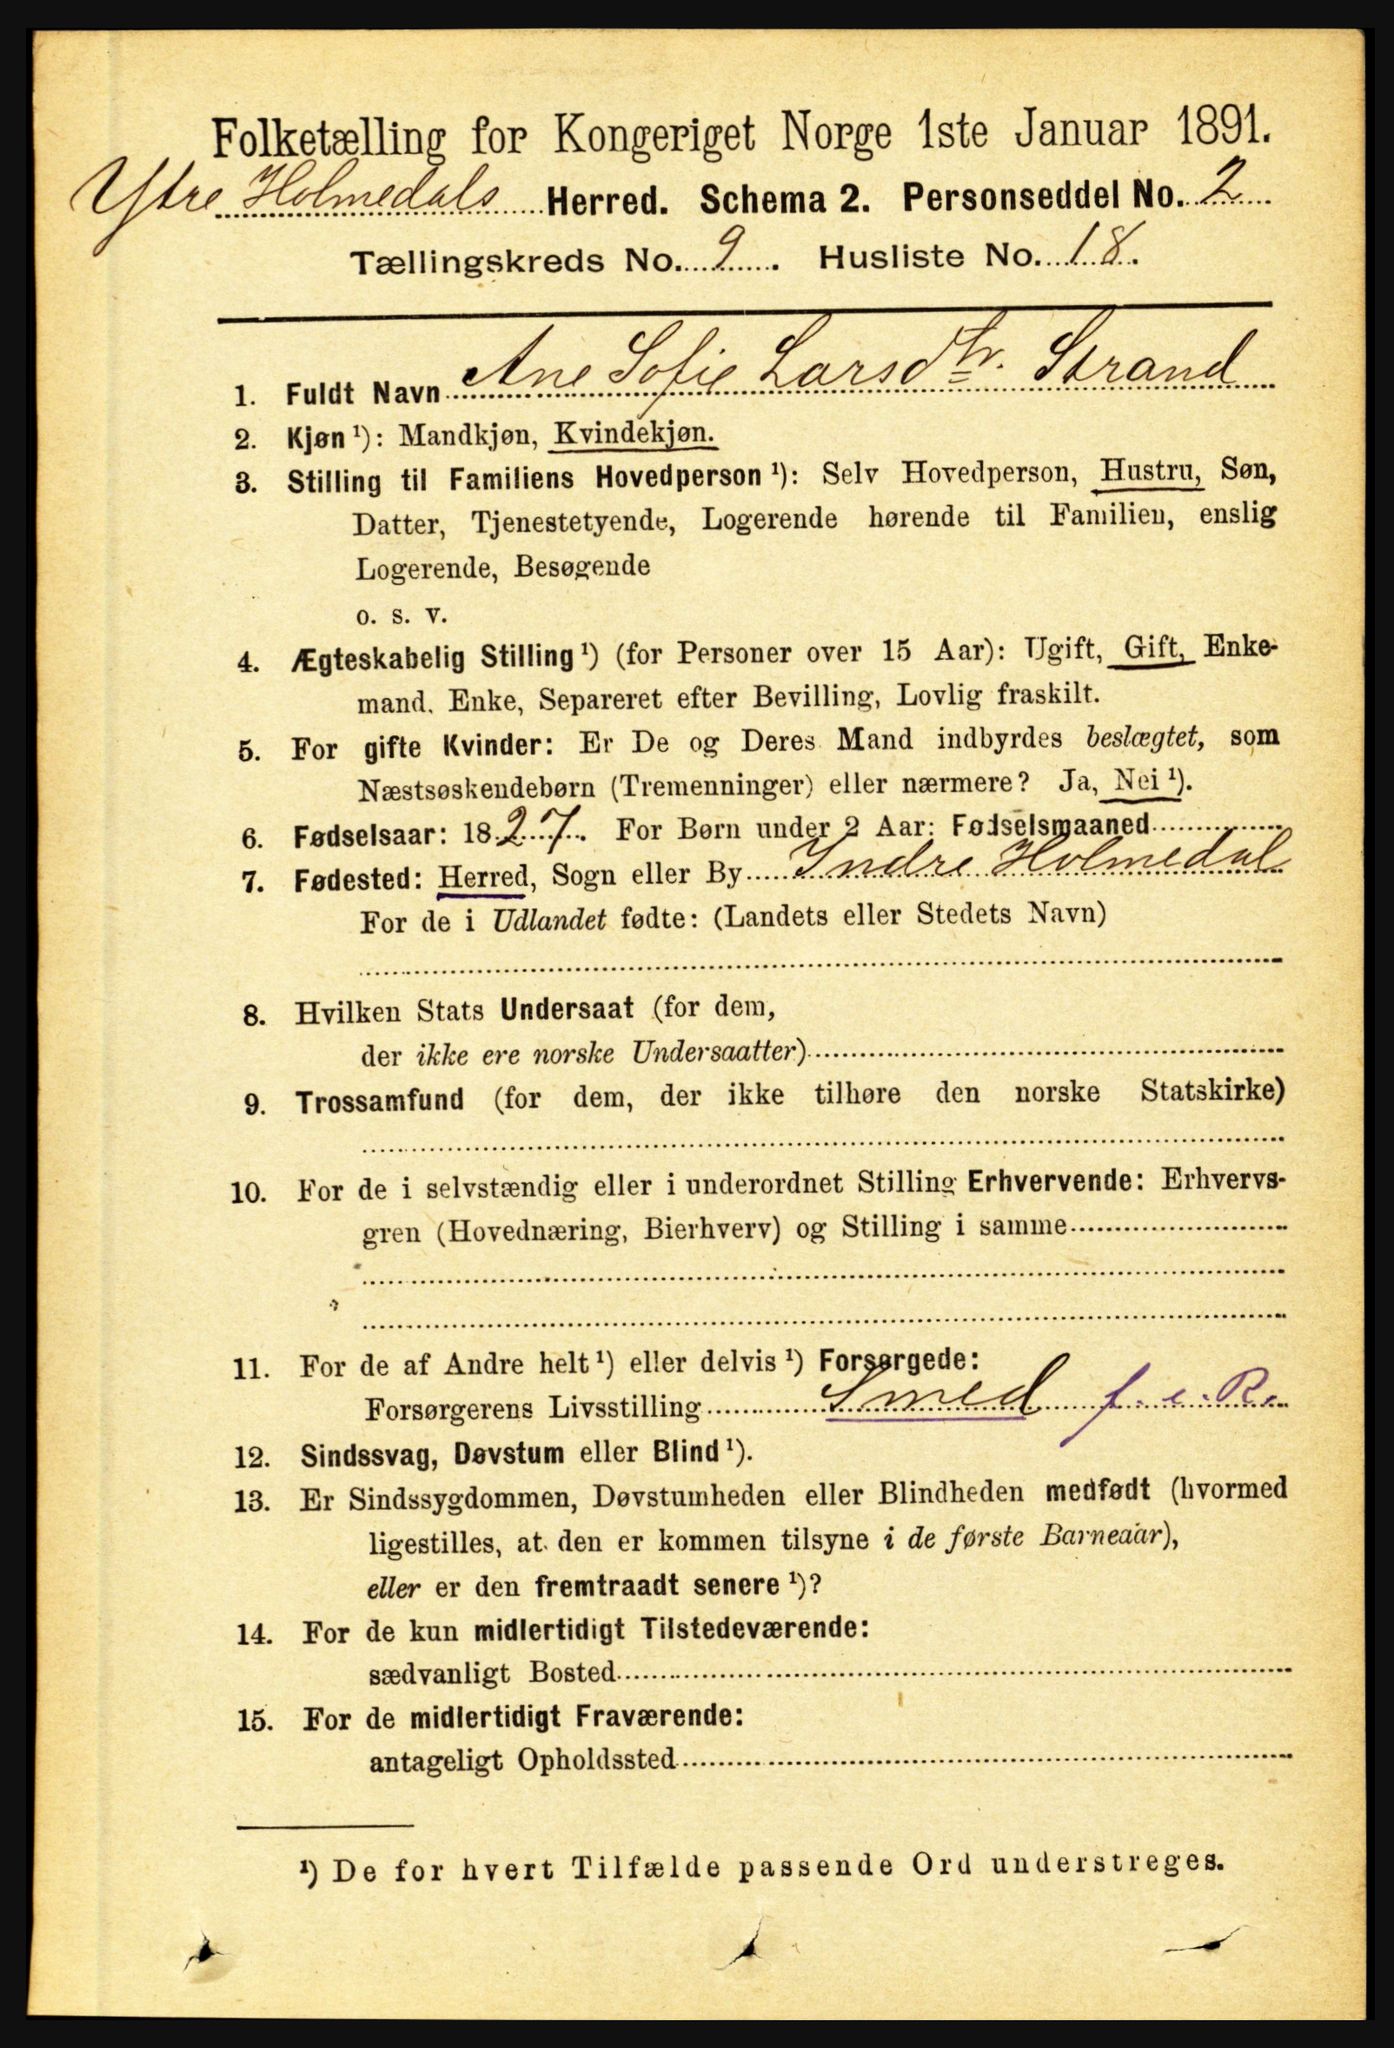 Folketælling for Kongeriget Norge 1ste Januar 1891.
Ytre Holmedals Herred. Schema 2. Personseddel No. 2
Tællingskreds No. 9. Husliste No. 18.
1. Fuldt Navn Ane Sofie Larsdtr. Strand
2. Kjøn ¹): Mandkjøn, Kvindekjøn.
3. Stilling til Familiens Hovedperson ¹): Selv Hovedperson, Hustru, Søn,
Datter, Tjenestetyende, Logerende hørende til Familien, enslig
Logerende, Besøgende
o. s. v.
4. Ægteskabelig Stilling ¹) (for Personer over 15 Aar): Ugift, Gift, Enke-
mand, Enke, Separeret efter Bevilling, Lovlig fraskilt.
5. For gifte Kvinder: Er De og Deres Mand indbyrdes beslægtet, som
Næstsøskendebørn (Tremenninger) eller nærmere? Ja, Nei ¹).
6. Fødselsaar: 1827. For Børn under 2 Aar: Fødselsmaaned
7. Fødested: Herred, Sogn eller By Indre Holmedal
For de i Udlandet fødte: (Landets eller Stedets Navn)
8. Hvilken Stats Undersaat (for dem,
der ikke ere norske Undersaatter)
9. Trossamfund (for dem, der ikke tilhøre den norske Statskirke)
10. For de i selvstændig eller i underordnet Stilling Erhvervende: Erhvervs-
gren (Hovednæring, Bierhverv) og Stilling i samme
11. For de af Andre helt ¹) eller delvis ¹) Forsørgede:
Forsørgerens Livsstilling Smed f. e. R.
12. Sindssvag, Døvstum eller Blind ¹).
13. Er Sindssygdommen, Døvstumheden eller Blindheden medfødt (hvormed
ligestilles, at den er kommen tilsyne i de første Barneaar),
eller er den fremtraadt senere ¹)?
14. For de kun midlertidigt Tilstedeværende:
sædvanligt Bosted
15. For de midlertidigt Fraværende:
antageligt Opholdssted
¹) De for hvert Tilfælde passende Ord understreges.